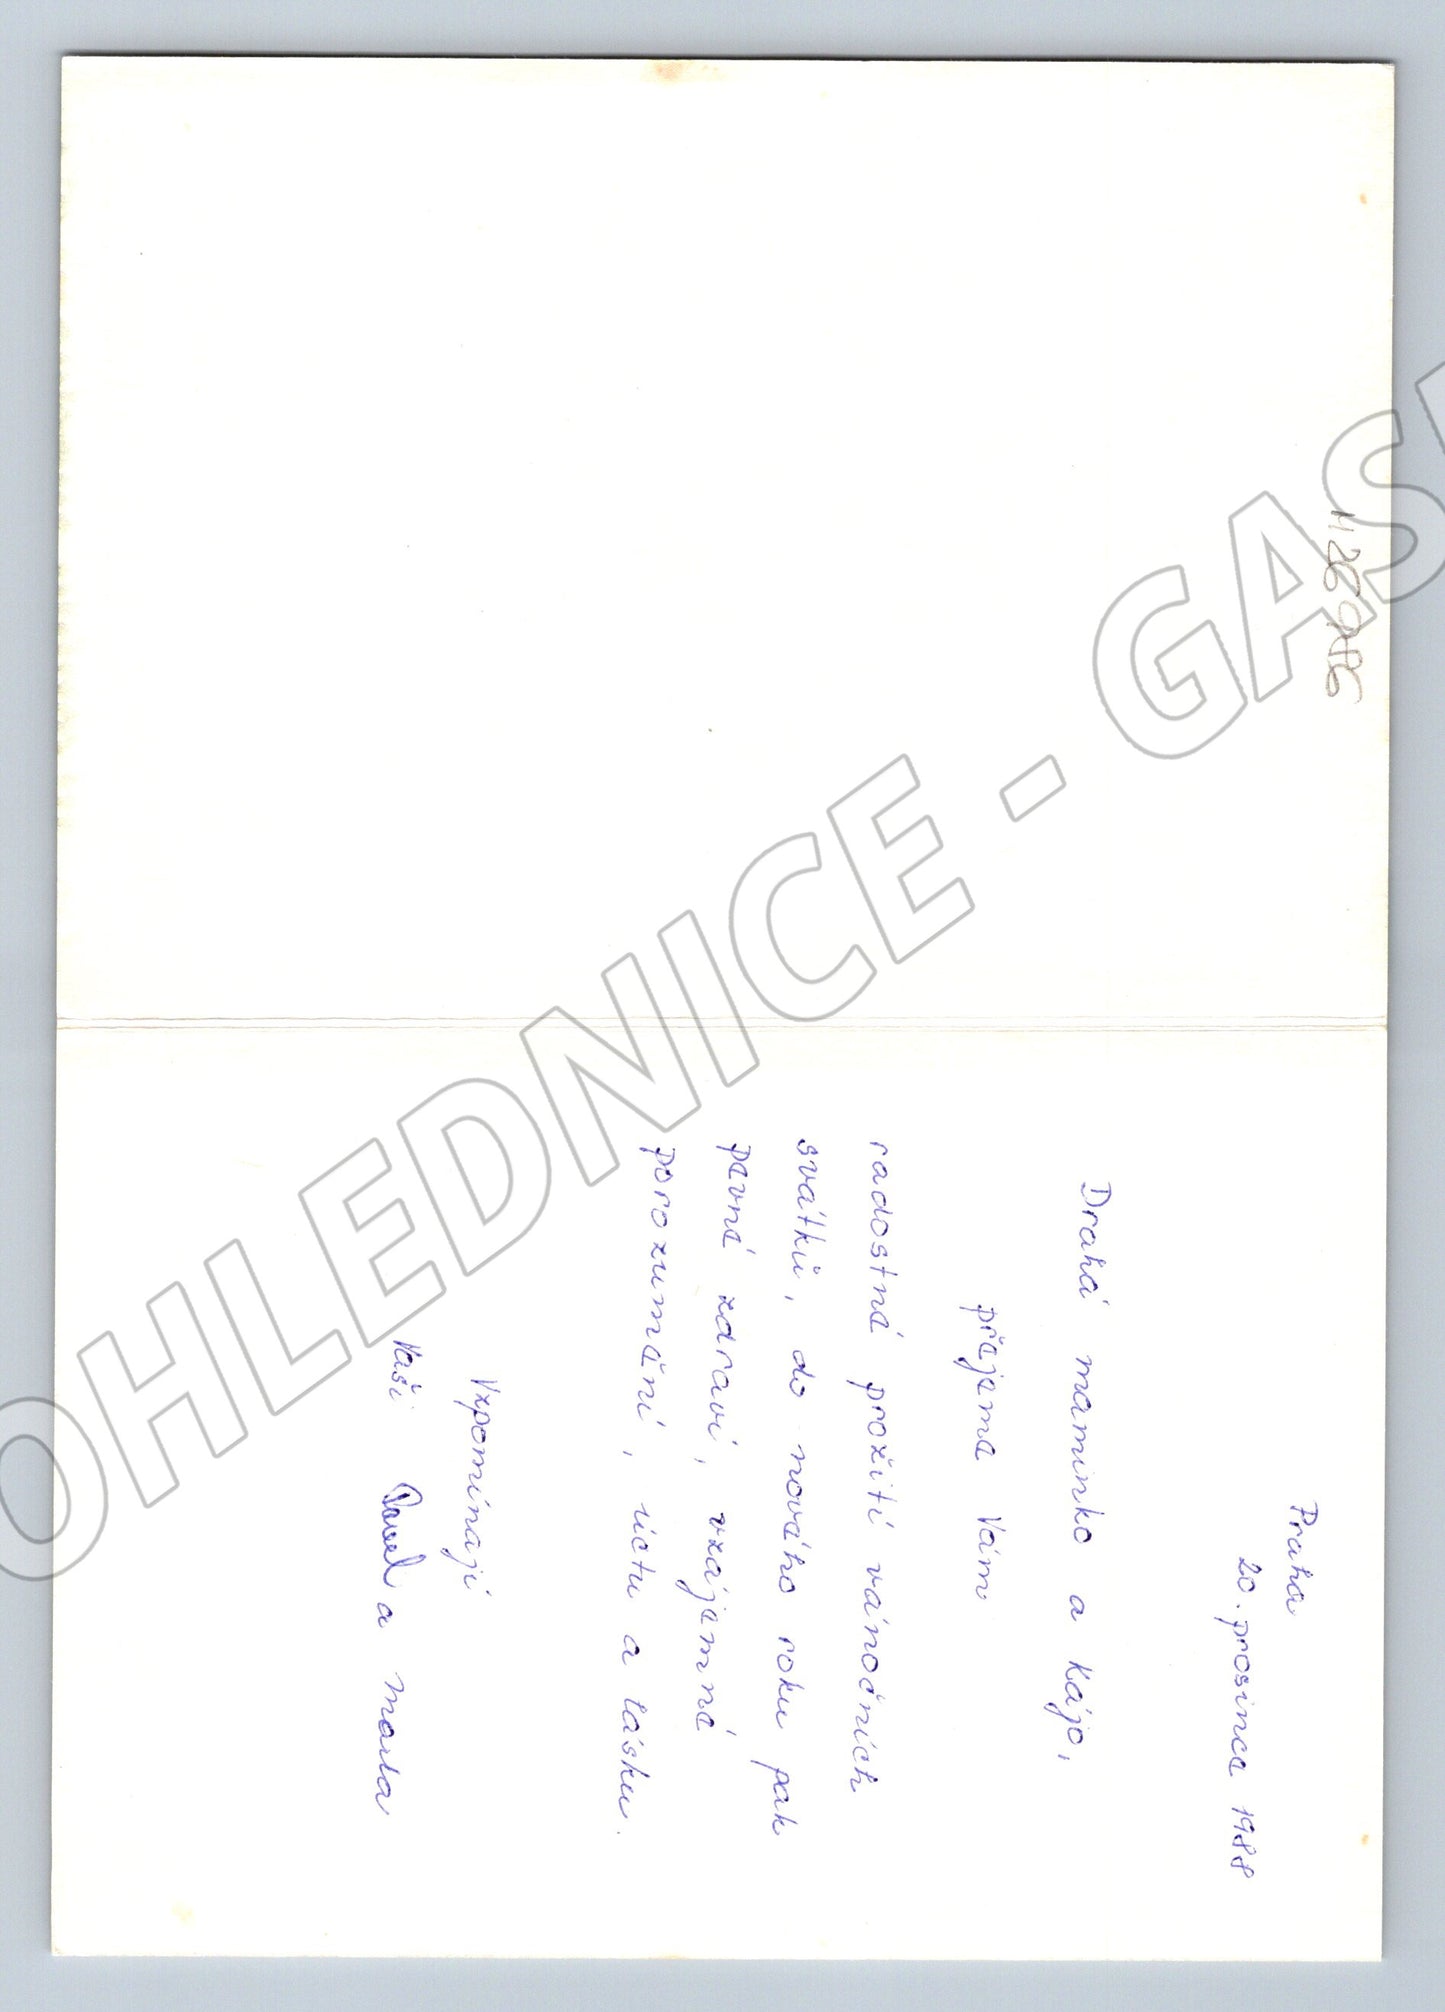 Praha
20. prosince 1988
Drahá maminko a Kájo,
přejeme Vám
radostné prožití vánočních
svátků, do nového roku pak
pevné zdraví, vzájemné
porozumění, úctu a lásku.
Vzpomínají
Vaši Pavel a Marta
OHLEDNICE - GAS